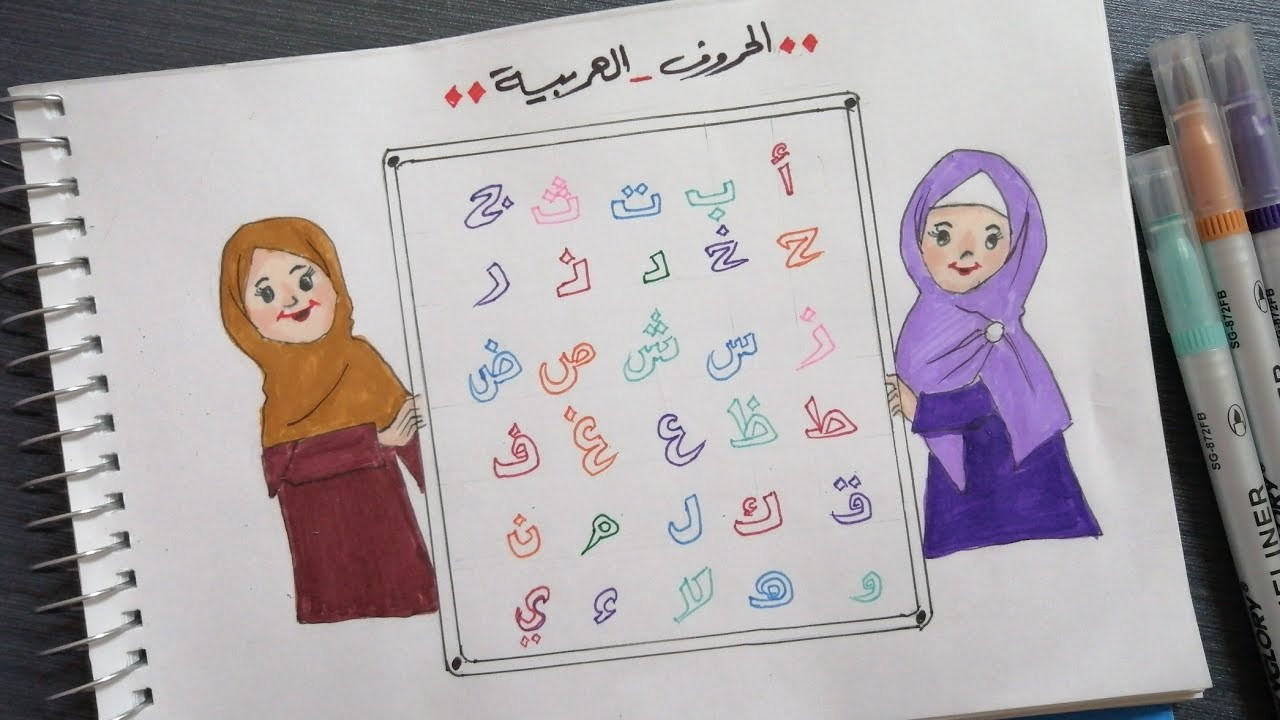 الحروف_العربية
أ ب ت ث ج
ح خ د ذ ر
ز س ش ص ض
ط ظ ع غ ف
ق ك ل م ن
و ه لا ء ي
SG-872FB
SG-872FB
872FB